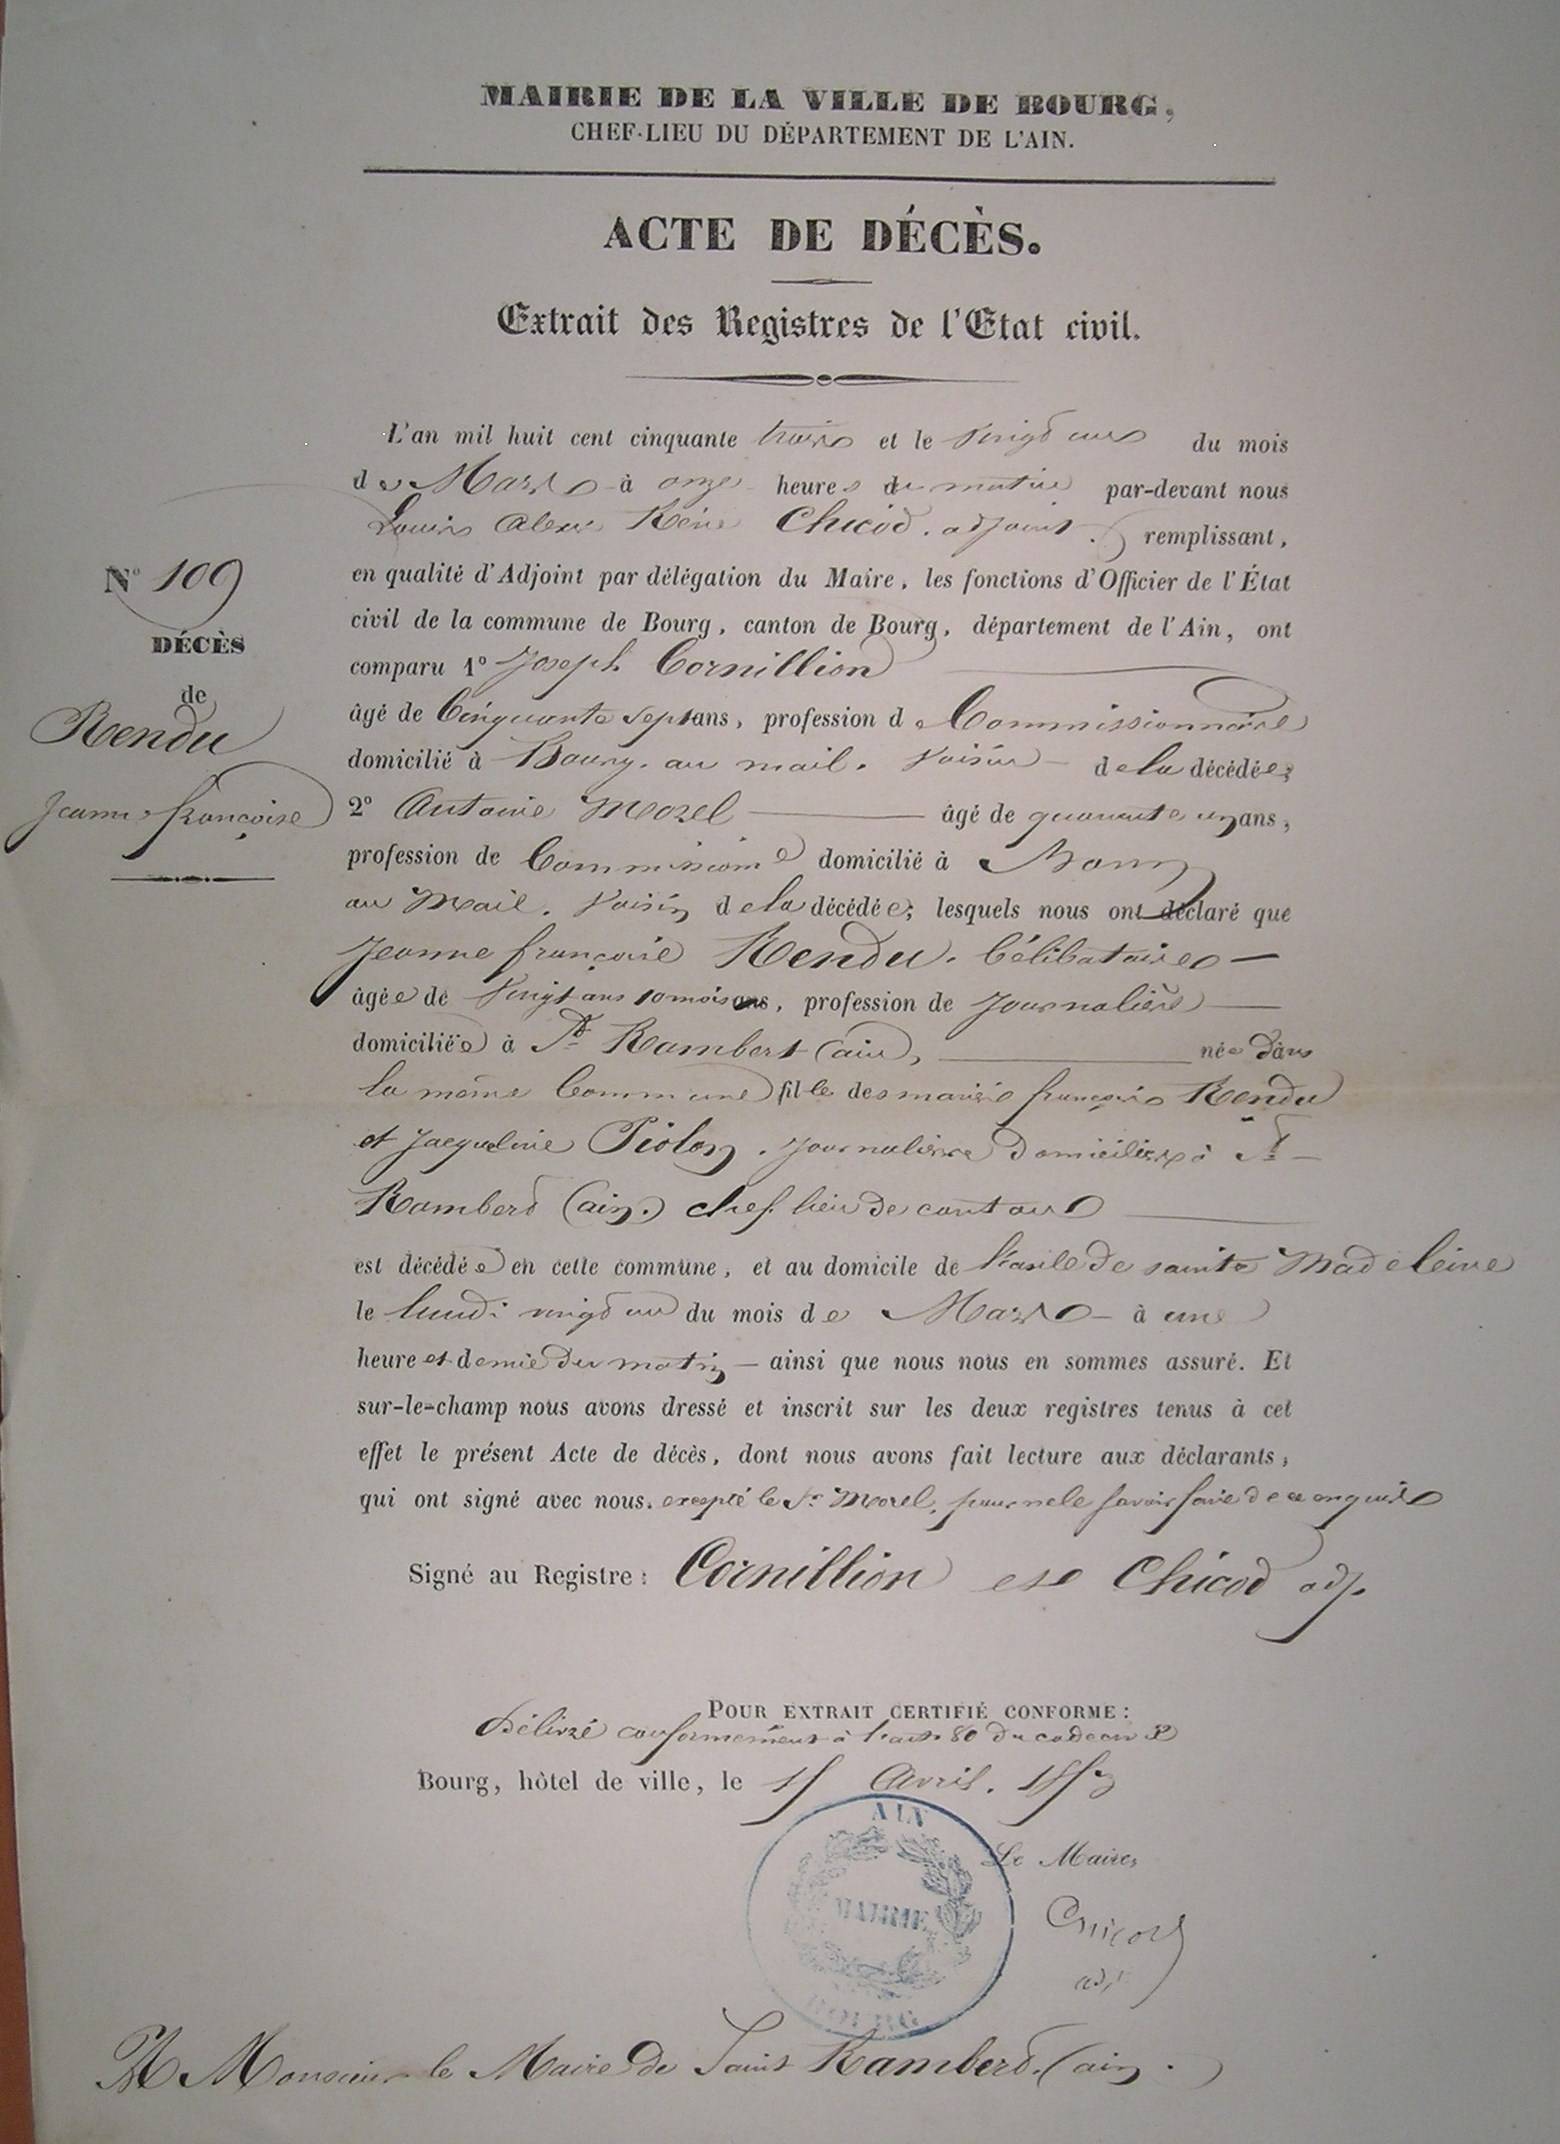 MAIRIE DE LA VILLE DE BOURG,
CHEF-LIEU DU DÉPARTEMENT DE L'AIN.
ACTE DE DÉCÈS.
Extrait des Registres de l'Etat civil.
L'an mil huit cent cinquante trois et le vingt un du mois
de Mars à onze heures du matin par-devant nous
Louis Alexis Réné Chicod, adjoint. remplissant,
en qualité d'Adjoint par délégation du Maire, les fonctions d'Officier de l'État
civil de la commune de Bourg, canton de Bourg, département de l'Ain, ont
comparu 1° Joseph Cornillion
âgé de Cinquante sept ans, profession de Commissionnaire
domicilié à Bourg. au mail. Voisin de la décédée;
2° Antoine Morel âgé de quarante un ans,
profession de Commissionre domicilié à Bourg
au Mail. Voisin de la décédée; lesquels nous ont déclaré que
Jeanne françoise Rendu. Célibataire
âgée de Vingt ans 10 mois ans, profession de Journalière
domiciliée à St Rambert (ain), née dans
la même Commune fille des mariés françois Rendu
et Jacqueline Piolon. Journaliers domiciliés à St
Rambert (ain.) chef lieu de canton
est décédée en cette commune, et au domicile de l'asile de sainte Madeleine
le lundi vingt un du mois de Mars à une
heure et demie du matin ainsi que nous nous en sommes assuré. Et
sur-le-champ nous avons dressé et inscrit sur les deux registres tenus à cet
effet le présent Acte de décès, dont nous avons fait lecture aux déclarants,
qui ont signé avec nous. excepté le Sr Morel, pour ne le savoir faire de ce enquis
Signé au Registre: Cornillion et Chicod adj.
N° 109
DÉCÈS
de
Rendu
Jeanne françoise
POUR EXTRAIT CERTIFIÉ CONFORME:
Délivré conformément à l'art. 80 du code civil
Bourg, hôtel de ville, le 15 Avril. 1853
AIN
MAIRIE
BOURG
Le Maire,
Chicod
adj.
A Monsieur le Maire de Saint Rambert. (ain.)